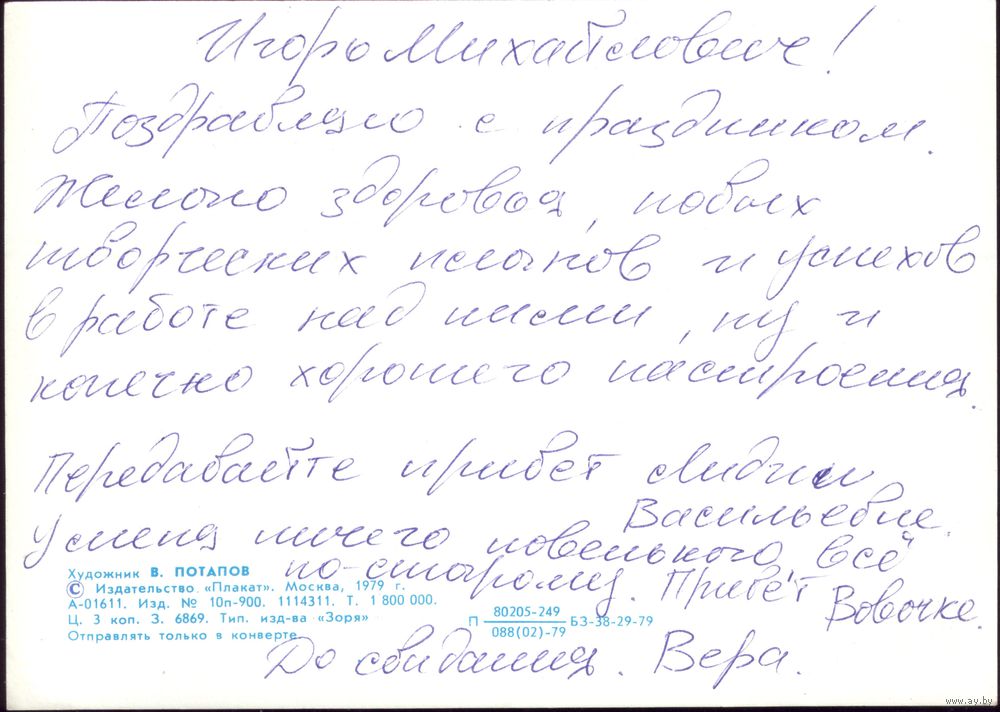 Игорь Михайлович!
Поздравляю с праздником.
Желаю здоровья, новых
творческих поисков и успехов
в работе над ними, ну и
конечно хорошего настроения.
Передавайте привет Лидии
Васильевне.
У меня ничего новенького, всё
по-старому. Привет Вовочке.
До свидания. Вера.
Художник В. ПОТАПОВ
© Издательство «Плакат». Москва, 1979 г.
А-01611. Изд. № 10п-900. 1114311. Т. 1 800 000.
Ц. 3 коп. З. 6869. Тип. изд-ва «Зоря»
Отправлять только в конверте
П 80205-249 БЗ-38-29-79
088(02)-79
www.ay.by